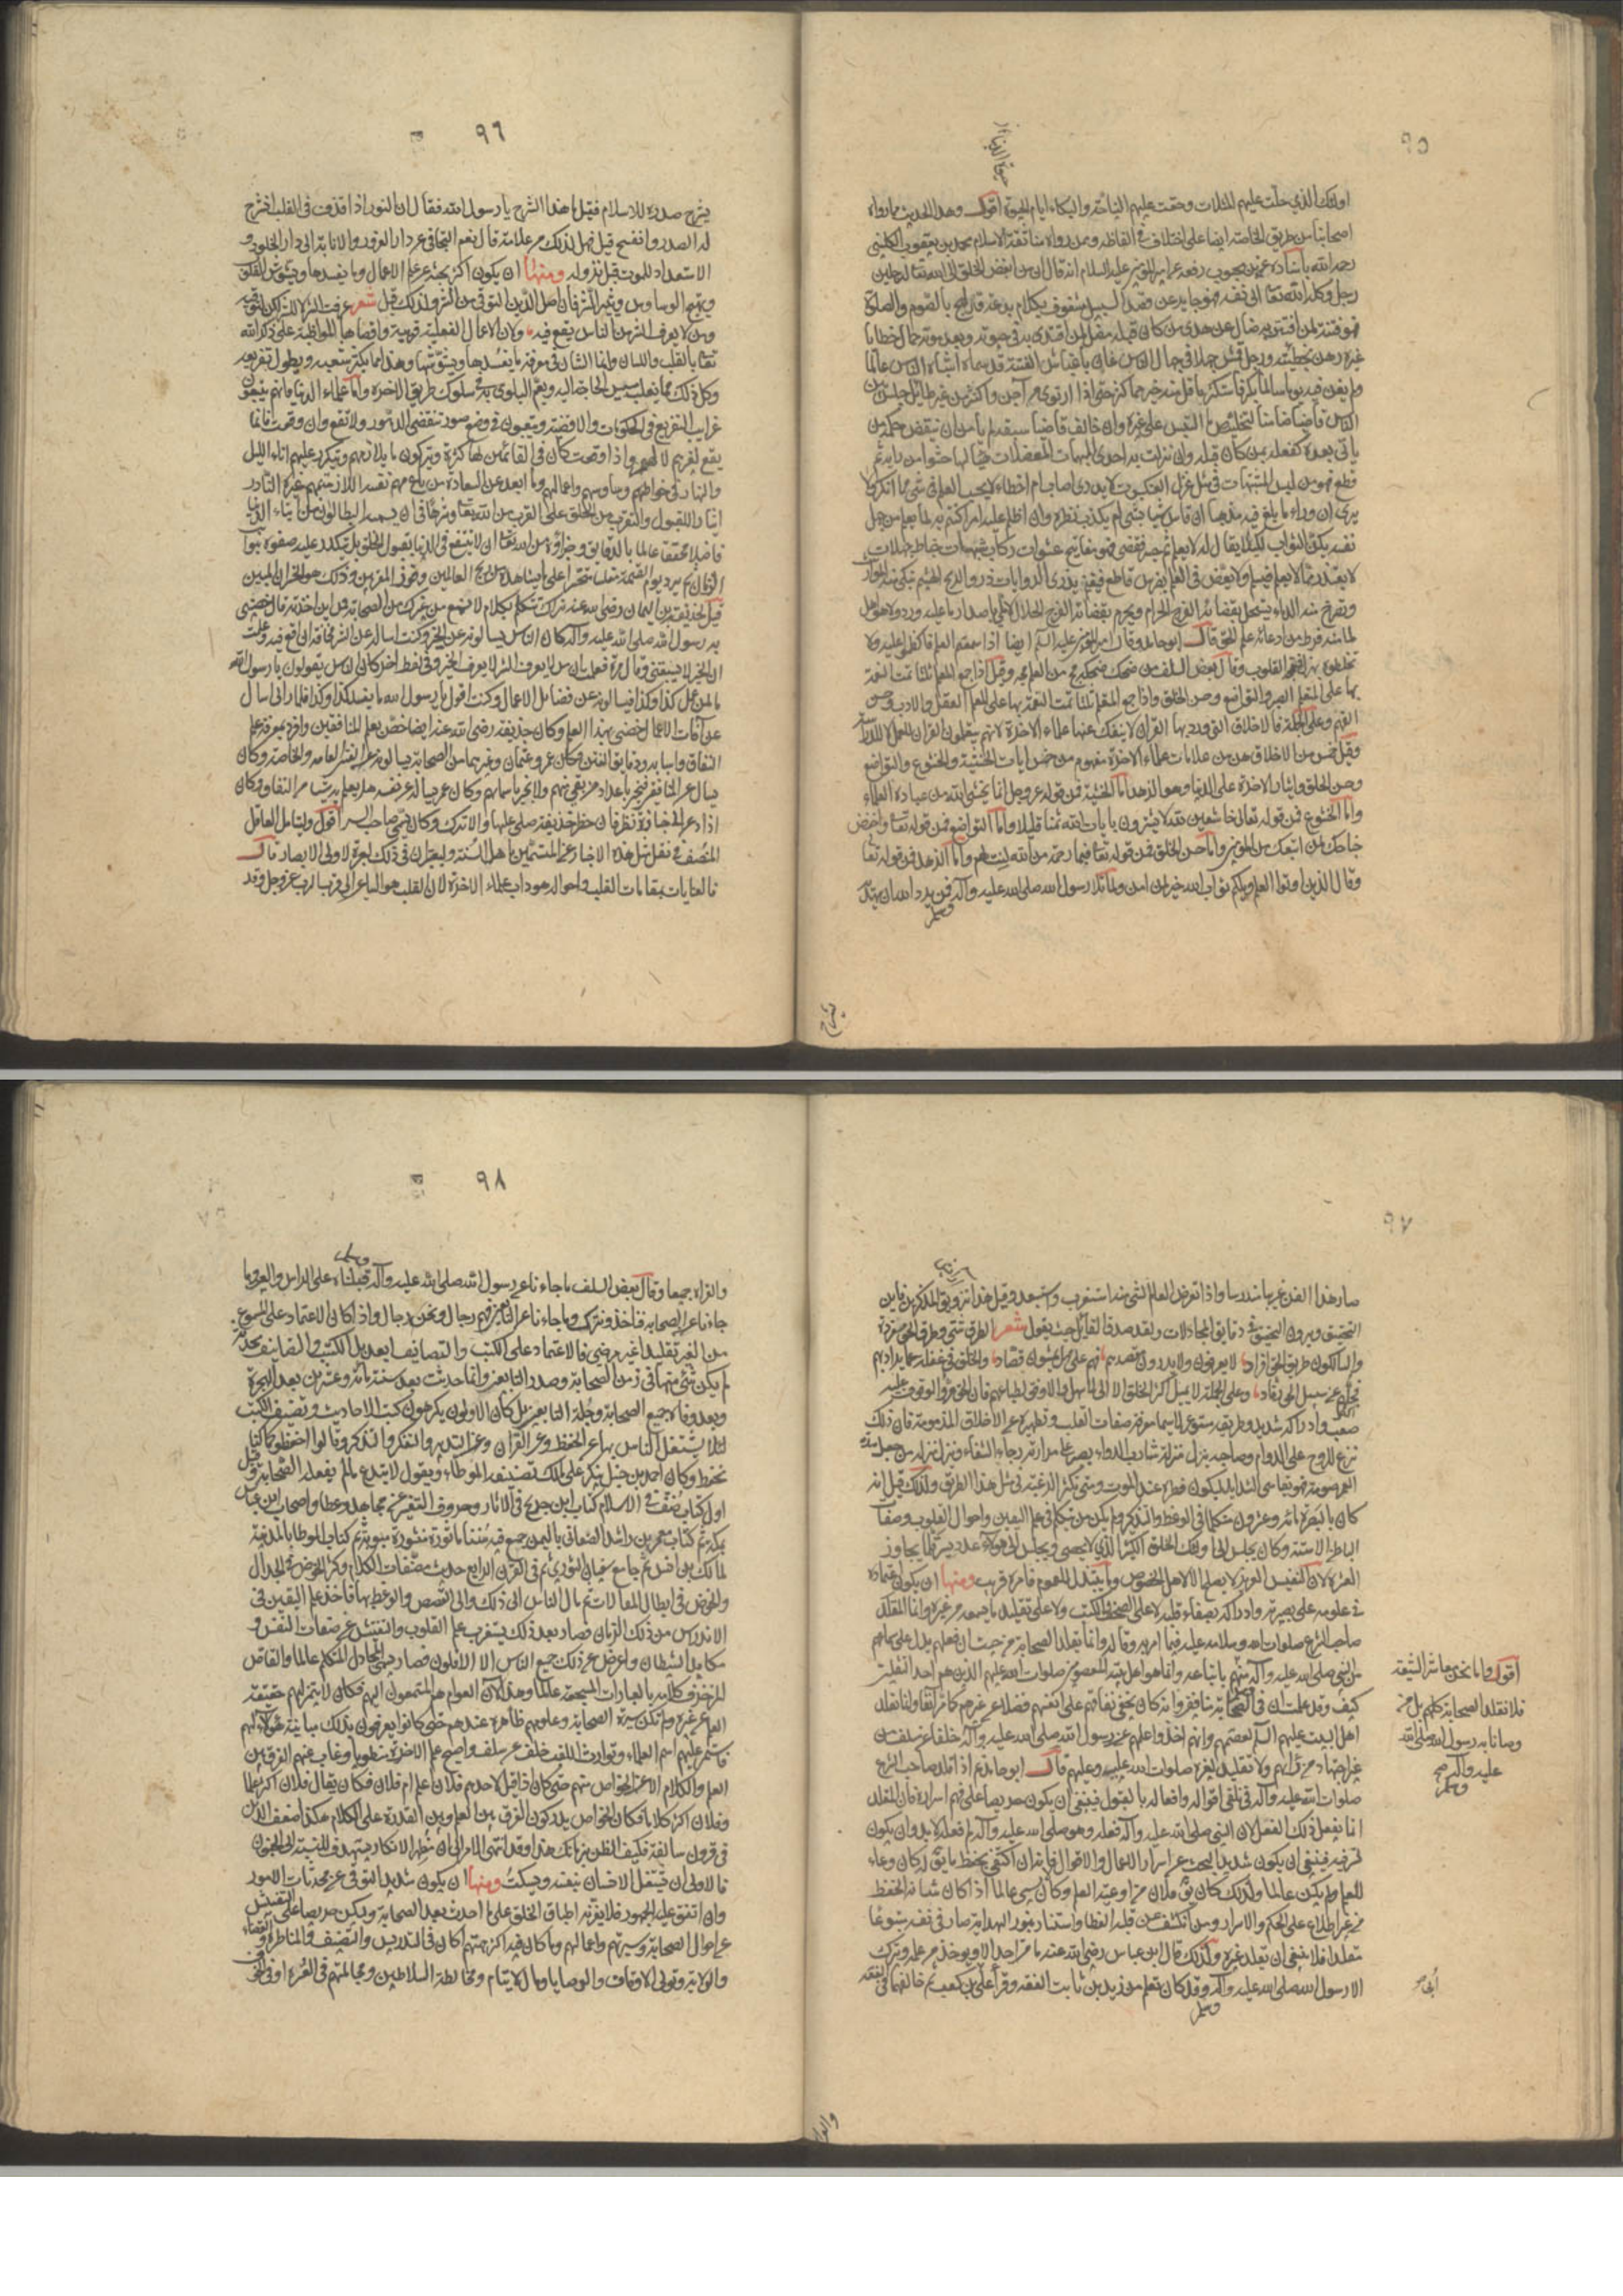 ٩٥
اولئك الذين حلت عليهم المثلات وحقت عليهم النياحة والبكاء ايام الحيوة اقول وهذا الحديث مما رواه
اصحابنا من طريق الخاصة ايضا على اختلاف في الفاظه وممن رواه منا ثقة الاسلام محمد بن يعقوب الكليني
رحمه الله باسناده عن محبوب رفعه عن امير المؤمنين عليه السلام انه قال ان من ابغض الخلق الى الله تعالى لرجلين
رجل وكله الله تعالى الى نفسه فهو جاير عن قصد السبيل مشغوف بكلام بدعة قد لهج بالصوم والصلوة
فهو فتنة لمن افتتن به ضال عن هدى من كان قبله مضل لمن اقتدى به في حيوته وبعد موته حمال خطايا
غيره رهن بخطيئته ورجل قمش جهلا في جهال الناس عان باغباش الفتنة قد سماه اشباه الناس عالما
ولم يغن فيه يوما سالما بكر فاستكثر ما قل منه خير مما كثر حتى اذا ارتوى من آجن واكتنز من غير طايل جلس بين
الناس قاضيا ضامنا لتخليص ما التبس على غيره وان خالف قاضيا سبقه لم يأمن ان ينقض حكمه من
يأتي بعده كفعله بمن كان قبله وان نزلت به احدى المبهمات المعضلات هيأ لها حشوا من رايه ثم
قطع فهو من لبس الشبهات في مثل غزل العنكبوت لا يدري اصاب ام اخطاء لا يحسب العلم في شئ مما انكر ولا
يرى ان وراء ما بلغ فيه مذهبا ان قاس شيا بشئ لم يكذب نظره وان اظلم عليه امر اكتتم به لما يعلم من جهل
نفسه لكيلا يقال له لا يعلم ثم جسر فقضى فهو مفاتيح عشوات ركاب شبهات خباط جهالات
لا يعتذر مما لا يعلم فيسلم ولا يعض في العلم بضرس قاطع فيغنم يذري الروايات ذرو الريح الهشيم تبكي منه المواريث
وتصرخ منه الدماء يستحل بقضائه الفرج الحرام ويحرم بقضائه الفرج الحلال لا ملي باصدار ما عليه ورد ولا هو اهل
لما منه فرط من ادعائه علم الحق قال ابو حامد وقال امير المؤمنين عليه السلام ايضا اذا سمعتم العلم فاكظموا عليه ولا
تخلطوه بهزل فتمجه القلوب وقال بعض السلف من ضحك ضحكة مج من العلم مجة وقيل اذا جمع المعلم ثلثا تمت النعمة
بها على المتعلم الصبر والتواضع وحسن الخلق واذا جمع المتعلم ثلثا تمت النعمة بها على المعلم العقل والادب وحسن
الفهم وعلى الجملة فالاخلاق التي ورد بها القران لا ينفك عنها علماء الاخرة لانهم يتعلمون القران للعمل لا للرياسة
وقيل خمس من الاخلاق هن من علامات علماء الاخرة مفهوم من خمس ايات الخشية والخشوع والتواضع
وحسن الخلق وايثار الاخرة على الدنيا وهو الزهد اما الخشية فمن قوله عز وجل انما يخشى الله من عباده العلماء
واما الخشوع فمن قوله تعالى خاشعين لله لا يشترون بايات الله ثمنا قليلا واما التواضع فمن قوله تعالى واخفض
جناحك لمن اتبعك من المؤمنين واما حسن الخلق فمن قوله تعالى فبما رحمة من الله لنت لهم واما الزهد فمن قوله تعالى
وقال الذين اوتوا العلم ويلكم ثواب الله خير لمن امن ولما تلا رسول الله صلى الله عليه وآله وسلم فمن يرد الله ان يهديه
يشرح
٩٦
يشرح صدره للاسلام فقيل ما هذا الشرح يا رسول الله فقال ان النور اذا قذف في القلب انشرح
له الصدر وانفسح قيل فهل لذلك من علامة قال نعم التجافي عن دار الغرور والانابة الى دار الخلود و
الاستعداد للموت قبل نزوله ومنها ان يكون اكثر بحثه عن علم الاعمال وما يفسدها ويشوش القلوب
ويهيج الوساوس ويثير الشر فان اصل الدين التوقي من الشر ولذلك قيل شعر عرفت الشر لا للشر لكن لتوقيه
ومن لا يعرف الشر من الناس يقع فيه ولان الاعمال الفعلية قريبة واقصاها المواظبة على ذكر الله
تعالى بالقلب واللسان وانما الشان في معرفة ما يفسدها ويشوشها وهذا مما يكثر شعبه ويطول تفريعه
وكل ذلك مما يغلب مسيس الحاجة اليه ويعم البلوى به في سلوك طريق الاخرة واما علماء الدنيا فانهم يتبعون
غرايب التفريع في الحكومات والاقضية ويتعبون في وضع صور تنقضي الدهور ولا تقع وان وقعت فانما
يقع لغيرهم لا لهم واذا وقعت كان في القائمين بها كثرة ويتركون ما يلازمهم ويتكرر عليهم اناء الليل
والنهار في خواطرهم ووساوسهم واعمالهم وما ابعد عن السعادة من باع مهم نفسه اللازم بمهم غيره النادر
ايثارا للقبول والتقرب من الخلق على القرب من الله تعالى وشرها في ان يسميه البطالون من ابناء الدنيا
فاضلا محققا عالما بالدقايق وجزاؤه من الله تعالى ان لا ينتفع في الدنيا بقبول الخلق بل يتكدر عليه صفوه بنوايب
الزمان ثم يرد يوم القيمة مفلسا متحسرا على ما يشاهده من ربح العالمين وفوز المقربين وذلك هو الخسران المبين
قيل لحذيفة بن اليمان رضي الله عنه نراك تتكلم بكلام لا نسمع من غيرك من الصحابة فمن اين اخذته قال خصني
به رسول الله صلى الله عليه وآله كان الناس يسالونه عن الخير وكنت اساله عن الشر مخافة ان اقع فيه وعلمت
ان الخير لا يسبقني وقال مرة فعلمت ان من لا يعرف الشر لا يعرف الخير وفي لفظ اخر كان الناس يقولون يا رسول الله
ما لمن عمل كذا وكذا فيسالونه عن فضائل الاعمال وكنت اقول يا رسول الله ما يفسد كذا وكذا فلما راني اسال
عن آفات الاعمال خصني بهذا العلم وكان حذيفة رضي الله عنه ايضا خص بعلم المنافقين وافرد بمعرفة علم
النفاق واسبابه ودقايق الفتن وكان عمر وعثمان وغيرهما من الصحابة يسالونه عن الفتن العامة والخاصة وكان
يسال عن المنافقين فيخبر باعداد من بقي منهم ولا يخبر باسمائهم وكان عمر يساله عن نفسه هل يعلم به شيا من النفاق وكان
اذا دعى الى جنازة نظر فان حضر حذيفة صلى عليها والا ترك وكان يسمى صاحب السر اقول وليتامل العاقل
المنصف في نقل مثل هذه الاخبار عن المتسمين باهل السنة وليعتبر ان في ذلك لعبرة لاولي الابصار قال
فالعنايات بمقامات القلب واحواله هو داب علماء الاخرة لان القلب هو الساعي الى قرب الرب عز وجل وقد
٩٧
صار هذا الفن غريبا مندرسا واذا تعرض العالم لشئ منه استغرب واستبعد وقيل هذا تزويق المذكرين فاين
التحقيق ويرون التحقيق في دقايق المجادلات ولقد صدق القايل حيث يقول شعر الطرق شتى وطرق الحق مفردة
والسالكون طريق الحق افراد لا يعرفون ولا يدرون مقصدهم فهم على مهل يمشون قصاد والخلق في غفلة عما يراد بهم
فجلهم عن سبيل الحق رقاد وعلى الجملة لا يميل اكثر الخلق الا الى الاسهل والاوفق لطباعهم فان الحق مر والوقوف عليه
صعب وادراكه شديد وطريقه مستوعر لا سيما معرفة صفات القلب وتطهيره عن الاخلاق المذمومة فان ذلك
نزع للروح على الدوام وصاحبه ينزل منزلة شارب الدواء يصبر على مرارته رجاء الشفاء وينزل منزلة من جعل مدة
العمر صومه فهو يقاسي الشدايد ليكون فطره عند الموت ومتى تكثر الرغبة في مثل هذا الطريق ولذلك قيل انه
كان بالبصرة مائة وعشرون متكلما في الوعظ والتذكير ولم يكن من يتكلم في علم اليقين واحوال القلوب وصفات
الباطن الا ستة وكان يجلس الى اولئك الخلق الكثير الذي لا يحصى ويجلس الى هؤلاء عدد يسير قلما يجاوز
العشرة لان النفيس العزيز لا يصلح الا لاهل الخصوص وما يبتذل للعموم فامره قريب ومنها ان يكون اعتماده
في علومه على بصيرته وادراكه بصفاء قلبه لا على الصحف والكتب ولا على تقليد ما يسمعه من غيره وانما المقلد
صاحب الشرع صلوات الله وسلامه عليه فيما امر به وقاله وانما يقلد الصحابة من حيث ان فعلهم يدل على سماعهم
من النبي صلى الله عليه وآله
اقول واما نحن معاشر الشيعة
فلا نقلد الصحابة كلهم بل من
وصانا به رسول الله صلى الله
عليه وآله وسلم
كيف وقد علمت ان في الصحابة منافقين وانه كان يخفى نفاقهم على انفسهم فضلا عن غيرهم كما مر آنفا وانما نقلد
اهل البيت عليهم السلام لعصمتهم وانهم اخذوا علمهم عن رسول الله صلى الله عليه وآله خلفا عن سلف من
غير اجتهاد من ارائهم ولا تقليد لغيره صلوات الله عليه وعليهم قال ابو حامد ثم اذا قلد صاحب الشرع
صلوات الله عليه وآله في تلقي اقواله وافعاله بالقبول فينبغي ان يكون حريصا على فهم اسراره فان المقلد
انما يفعل ذلك الفعل لان النبي صلى الله عليه وآله فعله وهو صلى الله عليه وآله لم فعله لا بد وان يكون
لسر فيه فينبغي ان يكون شديد البحث عن اسرار الاعمال والاقوال فانه ان اكتفى بحفظ ما يقال كان وعاء
للعلم ولم يكن عالما ولذلك كان يقال فلان من اوعية العلم وكان لا يسمى عالما اذا كان شانه الحفظ
من غير اطلاع على الحكم والاسرار ومن انكشف عن قلبه الغطا واستنار بنور الهداية صار في نفسه متبوعا
مقلدا فلا ينبغي ان يقلد غيره ولذلك قال ابن عباس رضي الله عنه ما من احد الا ويوخذ من علمه ويترك
الا رسول الله صلى الله عليه وآله وسلم وقد كان تعلم من زيد بن ثابت الفقه وقرأ على ابي بن كعب ثم خالفهما في الفقه
٩٨
والقراة جميعا وقال بعض السلف ما جاءنا عن رسول الله صلى الله عليه وآله وسلم قبلناه على الراس والعين وما
جاءنا عن الصحابة فناخذ ونترك وما جاءنا عن التابعين فهم رجال ونحن رجال واذا كان الاعتماد على المسموع
من الغير تقليدا غير مرضي فالاعتماد على الكتب والتصانيف ابعد بل الكتب والتصانيف محدثة
لم يكن شئ منها في زمن الصحابة وصدر التابعين وانما حدثت بعد سنة مائة وعشرين بعد الهجرة
وبعد وفاة جميع الصحابة وجلة التابعين بل كان الاولون يكرهون كتب الاحاديث وتصنيف الكتب
لئلا يشتغل الناس بها عن الحفظ وعن القران وعن التدبر والتفكر والتذكر وقالوا احفظوا كما كنا
نحفظ وكان احمد بن حنبل ينكر على مالك تصنيفه الموطاء ويقول لا يبتدع ما لم يفعله الصحابة وقيل
اول كتاب صنف في الاسلام كتاب ابن جريج في الاثار وحروف التفسير عن مجاهد وعطا واصحاب ابن عباس
بمكة ثم كتاب معمر بن راشد الصنعاني باليمن جمع فيه سننا ماثورة منثورة مبوبة ثم كتاب الموطا بالمدينة
لمالك بن انس ثم جامع سفيان الثوري ثم في القرن الرابع حدثت مصنفات الكلام وكثر الخوض في الجدال
والخوض في ابطال المقالات ثم مال الناس الى ذلك والى القصص والوعظ بها فاخذ علم اليقين في
الاندراس من ذلك الزمان فصار بعد ذلك يستغرب علم القلوب والتفتيش عن صفات النفس و
مكايد الشيطان واعرض عن ذلك جميع الناس الا الاقلون فصار يسمى المجادل المتكلم عالما والقاص
المزخرف كلامه بالعبارات المسجعة عالما وهذا لان العوام هم المستمعون اليهم فكان لا يتميز لهم حقيقة
العلم عن غيره ولم تكن سيرة الصحابة وعلومهم ظاهرة عندهم حتى كانوا يعرفون بذلك مباينة هؤلاء لهم
فاستمر عليهم اسم العلماء وتوارث اللقب خلف عن سلف واصبح علم الاخرة مطويا وغاب عنهم الفرق بين
العلم والكلام الا عن الخواص منهم حتى كان اذا قيل لاحدهم فلان اعلم ام فلان فكان يقال فلان اكثر علما
وفلان اكثر كلاما فكان الخواص يدركون الفرق بين العلم وبين القدرة على الكلام هكذا ضعف الدين
في قرون سالفة فكيف الظن بزمانك هذا وقد انتهى الامر الى ان مظهر الانكار يستهدف للنسبة الى الجنون
فالاولى ان يشتغل الانسان بنفسه ويسكت ومنها ان يكون شديد التوقي عن محدثات الامور
وان اتفق عليه الجمهور فلا يغرنه اطباق الخلق على ما احدث بعد الصحابة وليكن حريصا على التفتيش
عن احوال الصحابة وسيرتهم واعمالهم وما كان فيه اكثر همهم اكان في التدريس والتصنيف والمناظرة والقضاء
والولاية وتولي الاوقاف والوصايا ومال الايتام ومخالطة السلاطين ومجالستهم في العشرة او في الخوف